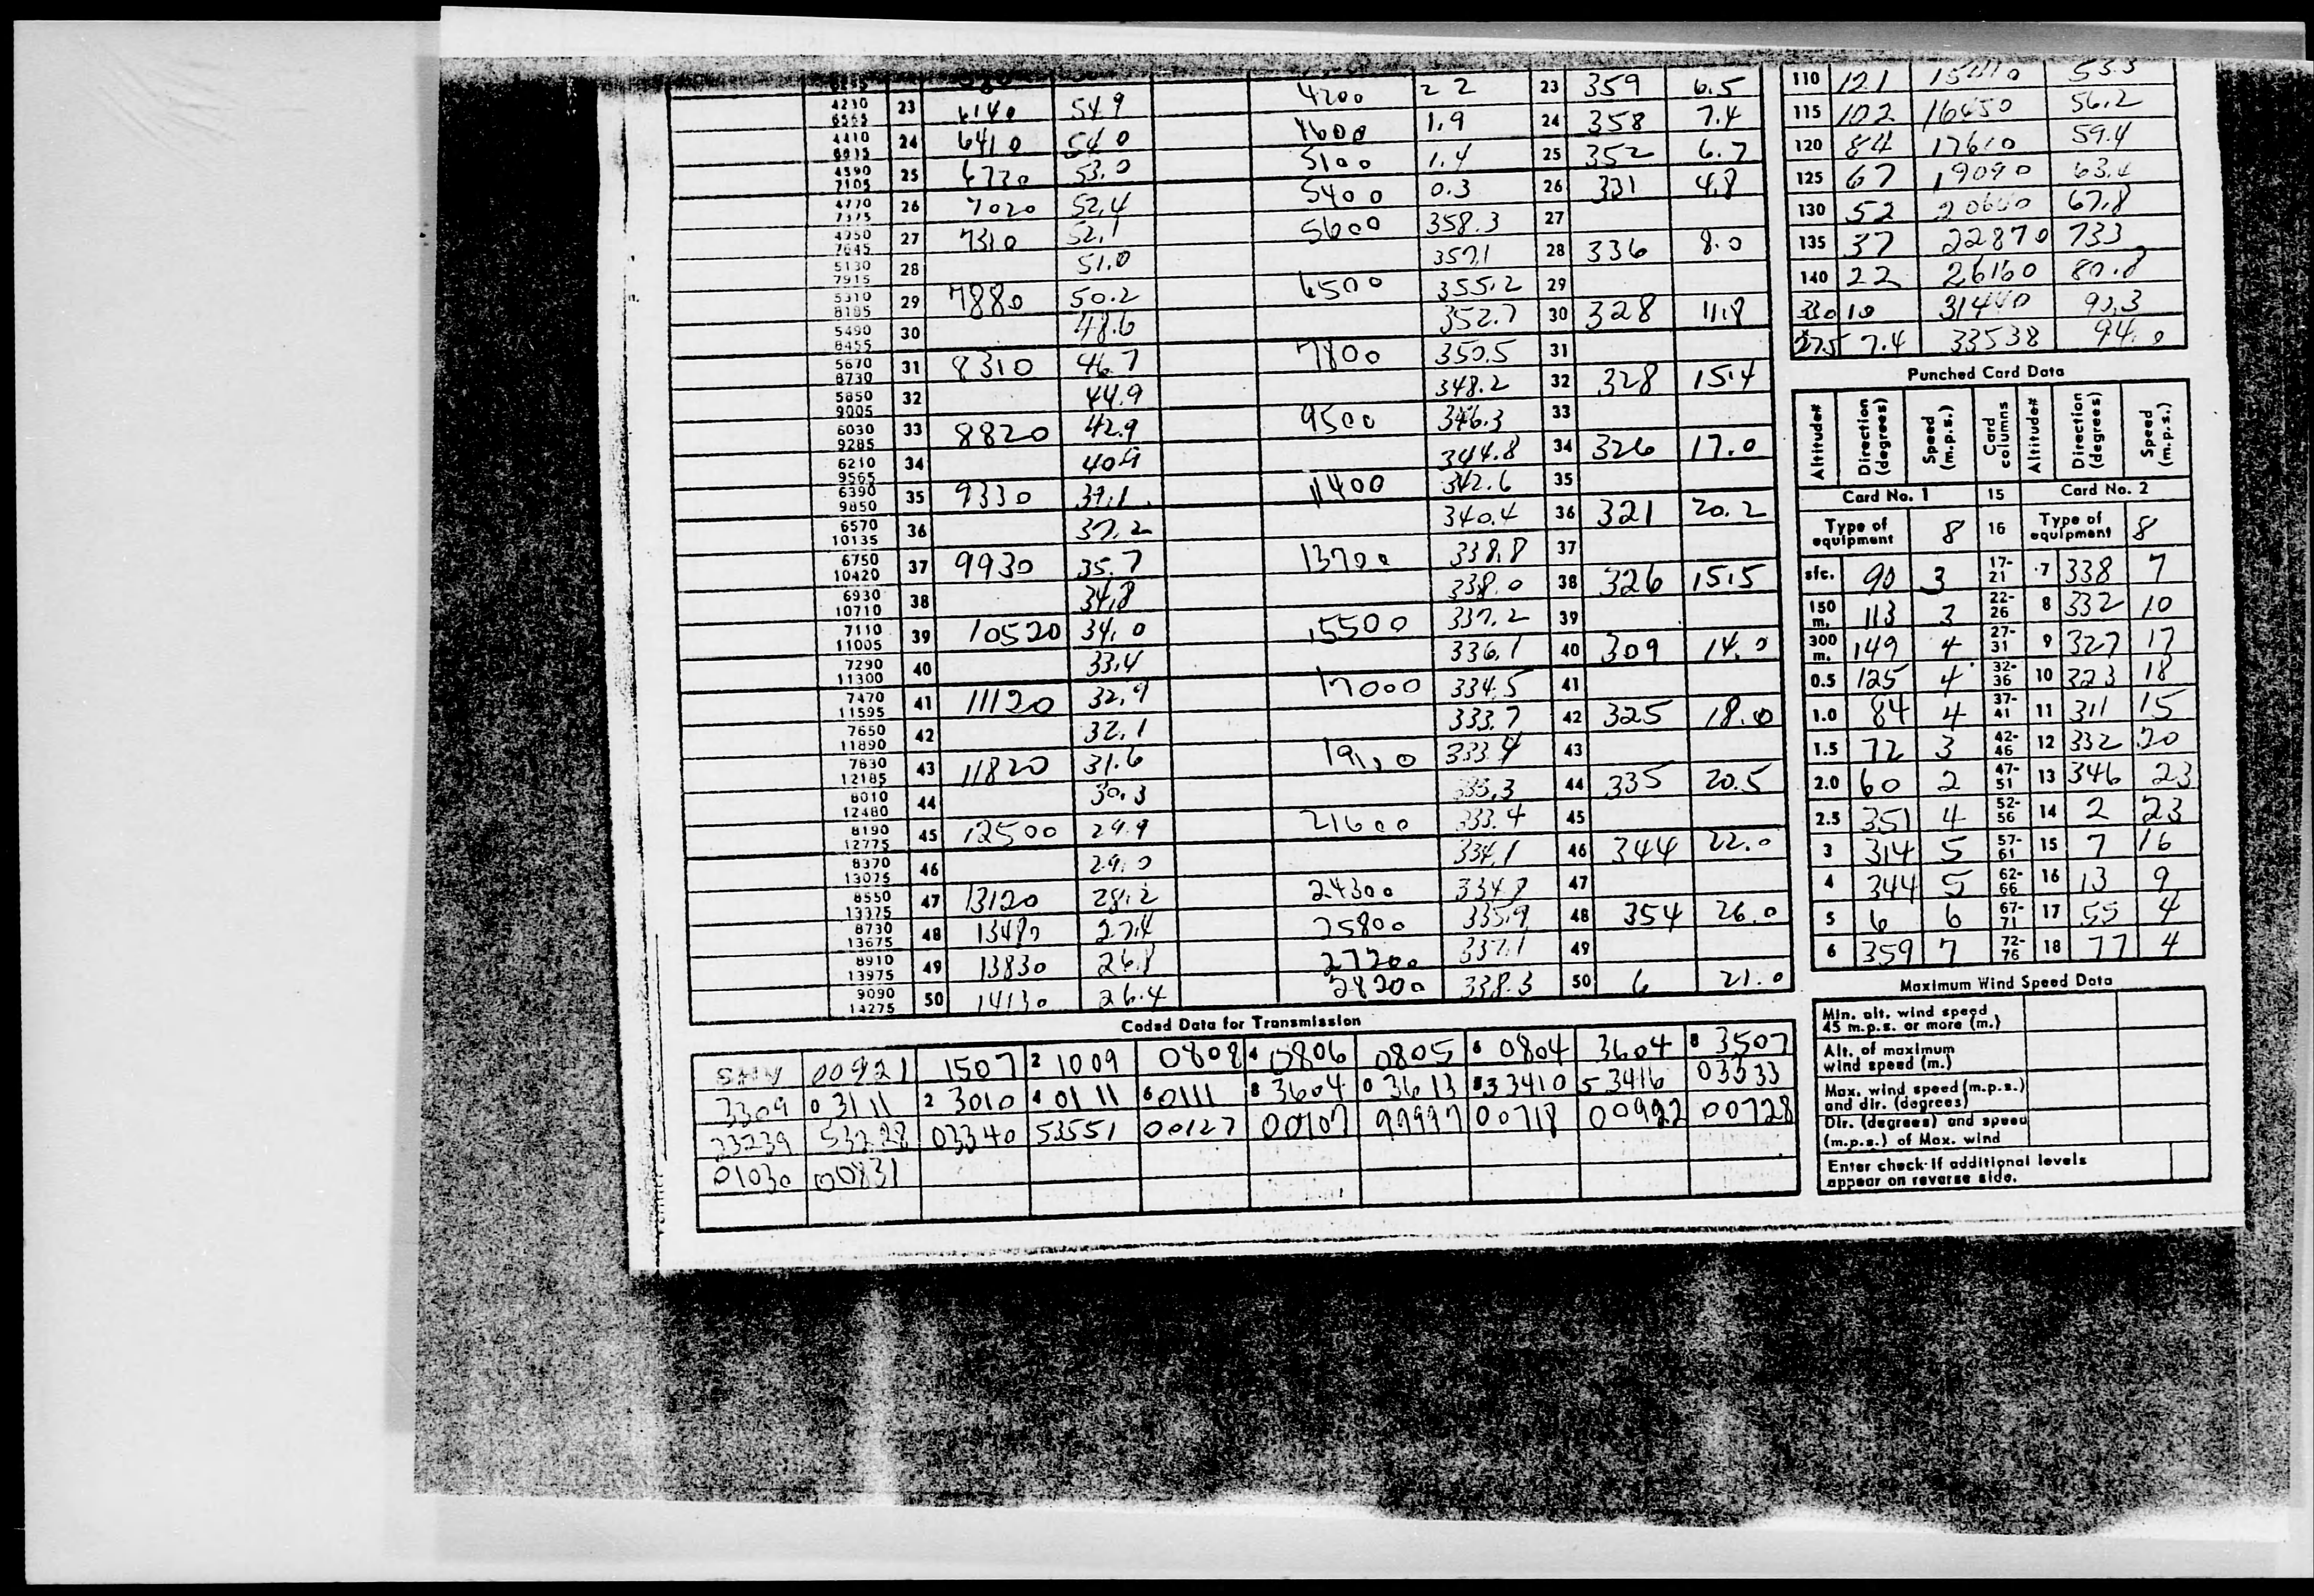 4200 2 2 23 359 6.5
4230 6565 23 6140 54.9
4600 1.9 24 358 7.4
4410 24 6410 54.0
5100 1.4 25 352 6.7
4590 7105 25 6720 53.0
5400 0.3 26 331 4.8
4770 7375 26 7020 52.4
5600 358.3 27
4950 7645 27 7310 52.1
357.1 28 336 8.0
5130 7915 28 51.0
6500 355.2 29
5310 8185 29 7880 50.2
352.7 30 328 11.8
5490 8455 30 48.6
7800 350.5 31
5670 8730 31 8310 46.7
348.2 32 328 15.4
5850 9005 32 44.9
9500 346.3 33
6030 9285 33 8820 42.9
344.8 34 326 17.0
6210 9565 34 40.9
11400 342.6 35
6390 9850 35 9330 39.1
340.4 36 321 20.2
6570 10135 36 37.2
13700 338.8 37
6750 10420 37 9930 35.7
338.0 38 326 15.5
6930 10710 38 34.8
15500 337.2 39
7110 11005 39 10520 34.0
336.1 40 309 14.0
7290 11300 40 33.4
17000 334.5 41
7470 11595 41 11120 32.9
333.7 42 325 18.0
7650 11890 42 32.1
333.4 43
7830 12185 43 11820 31.6
44 335 20.5
8010 12480 44 30.3
21600 333.4 45
8190 12775 45 12500 29.9
334.1 46 344 22.0
8370 13075 46 29.0
24300 334.9 47
8550 13375 47 13120 28.2
25800 335.9 48 354 26.0
8730 13675 48 13480 27.4
27200 337.1 49
8910 13975 49 13830 26.8
28200 338.3 50 6 21.0
9090 14275 50 14130 26.4
110 121 53.3
115 102 16650 56.2
120 84 17610 59.4
125 67 19090 63.4
130 52 20600 67.8
135 37 22870 733
140 22 26160 80.8
330 10 31440 90.3
7.4 33538 94.0
Punched Card Data
Altitude# Direction (degrees) Speed (m.p.s.) Card columns Altitude# Direction (degrees) Speed (m.p.s.)
Card No. 1 15 Card No. 2
Type of equipment 8 16 Type of equipment 8
sfc. 90 3 17-21 7 338 7
150 m. 113 3 22-26 8 332 10
300 m. 149 4 27-31 9 327 17
0.5 125 4 32-36 10 323 18
1.0 84 4 37-41 11 311 15
1.5 72 3 42-46 12 332 20
2.0 60 2 47-51 13 346 23
2.5 351 4 52-56 14 2 23
3 314 5 57-61 15 7 16
4 344 5 62-66 16 13 9
5 6 6 67-71 17 55 4
6 359 7 72-76 18 77 4
Maximum Wind Speed Data
Min. alt. wind speed 45 m.p.s. or more (m.)
Alt. of maximum wind speed (m.)
Max. wind speed (m.p.s.) and dir. (degrees)
Dir. (degrees) and speed (m.p.s.) of Max. wind
Enter check if additional levels appear on reverse side.
Coded Data for Transmission
00921 1507 2 1009 0808 4 0806 0805 6 0804 3604 8 3507
3309 0 3111 2 3010 4 0111 6 0111 8 3604 0 3613 3410 5 3416 03333
33239 53228 03340 53551 00127 00707 99997 00718 00922 00728
01030 00831